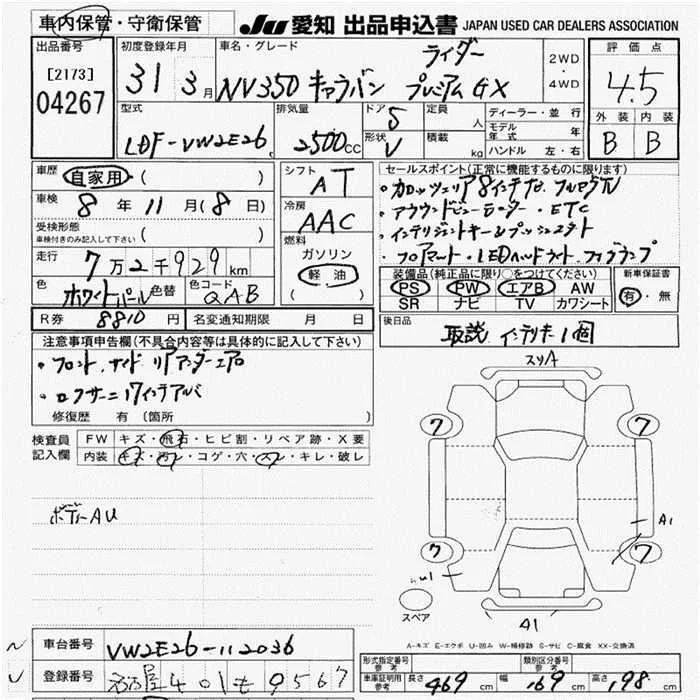 車内保管・守衛保管
JU 愛知 出品申込書 JAPAN USED CAR DEALERS ASSOCIATION
出品番号 [2173] 04267
初度登録年月 31 3月
車名・グレード NV350 キャラバン ライダー プレミアムGX
2WD・4WD
評価点 4.5
外装 内装
B B
型式 LDF-VW2E26
排気量 2500cc
ドア 5
形状 V
定員 人
積載 kg
ディーラー・並行
モデル年式 年
ハンドル 左・右
車歴 自家用 ( )
車検 8年 11月 (8日)
受検形態 ( )
車検付きのみ記入して下さい
走行 7万2千929km
色 ホワイトパール 色替 色コード QAB
シフト AT
冷房 AAC
燃料
ガソリン
軽油
( )
セールスポイント(正常に機能するものに限ります)
・カロッツェリア8インチナビ フルセグTV
・アラウンドビューモニター・ETC
・インテリジェントキー&プッシュスタート
・フロアマット・LEDヘッドライト フォグランプ
装備品(純正品に限り○をつけてください)
PS PW エアB AW
SR ナビ TV カワシート
新車保証書
有・無
R券 8810円 名変通知期限 月 日
後日品
取説 インテリキー1個
注意事項申告欄(不具合内容等は具体的に記入して下さい)
・フロント、サイド リアアンダーエアロ
・ロクサーニ 17インチアルバ
修復歴 有 (箇所 )
検査員記入欄
FW キズ・飛石・ヒビ割・リペア跡・X要
内装 キズ・汚レ・コゲ・穴・スレ・キレ・破レ
ボディーAU
スリA
7 7
A1
7 7
U1
スペア
A1
A-キズ E-エクボ U-凹み W-補修跡 S-サビ C-腐食 XX-交換済
車台番号 VW2E26-112036
登録番号 名古屋 401 も 9567
型式指定番号 参考
類別区分番号 参考
車庫証明用参考 長さ 469cm 幅 169cm 高さ 198cm